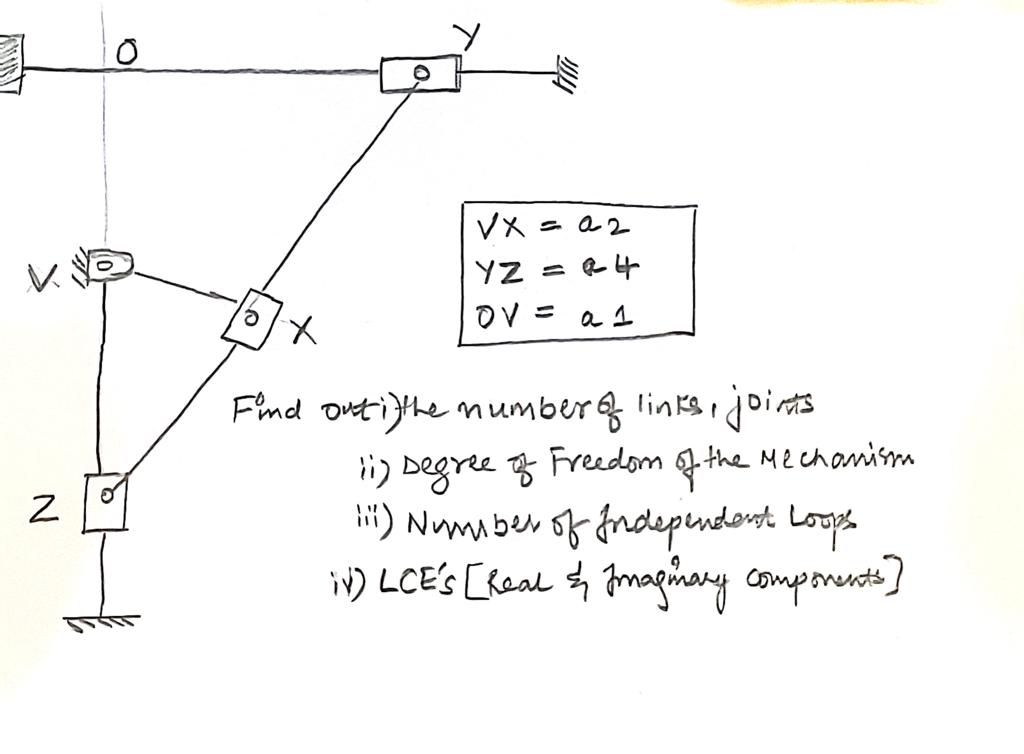 O
Y
V
X
Z
VX = a2
YZ = a4
OV = a1
Find out i) the number of links, joints
ii) Degree of Freedom of the Mechanism
iii) Number of Independent Loops
iv) LCE's [Real & Imaginary components]